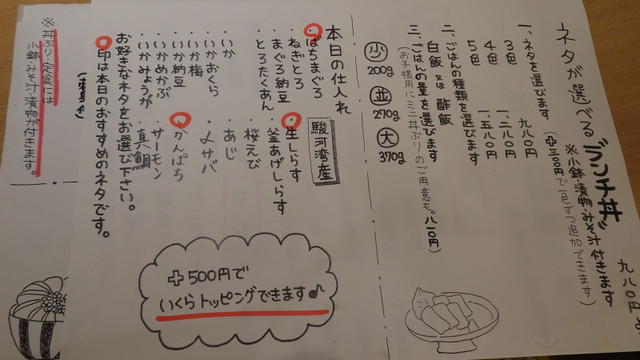 ネタが選べる"ランチ丼" 九八〇円
※小鉢・漬物・みそ汁付きます
一、ネタを選びます (+三〇〇円で一色ずつ追加できます)
3色 九八〇
4色 一、二八〇
5色 一、五八〇
二、ごはんの種類を選びます
白飯 又は 酢飯
三、ごはんの量を選びます
(お子様用にミニ丼ぶりのご用意も。八一〇円)
小 200g
並 270g
大 370g
本日の仕入れ
・ばちまぐろ
・ねぎとろ
・まぐろ納豆
・とろたくあん
・いか
・いかおくら
・いか梅
・いか納豆
・いかめかぶ
・いかみょうが
駿河湾産
・生しらす
・釜あげしらす
・桜えび
・あじ
・〆サバ
・かんぱち
・サーモン
・真鯛
お好きなネタをお選び下さい。
○印は本日のおすすめのネタです。
+500円で
いくらトッピングできます♪
※丼ぶり・定食には
小鉢・みそ汁・漬物が付きます。